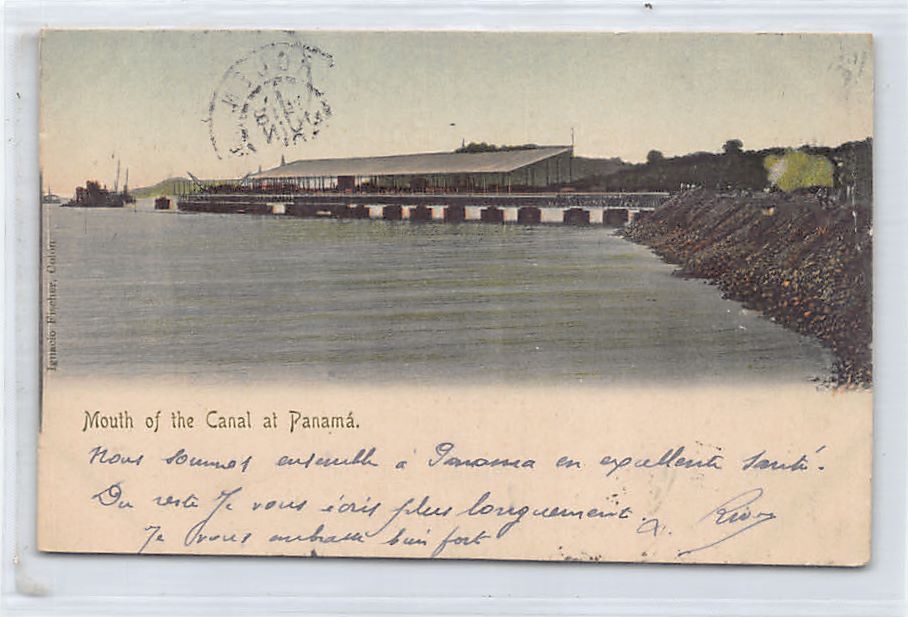 Ignacio Fischer, Colón
Mouth of the Canal at Panamá.
Nous sommes ensemble à Panama en excellente santé.
Du reste Je vous écris plus longuement.
Je vous embrasse bien fort